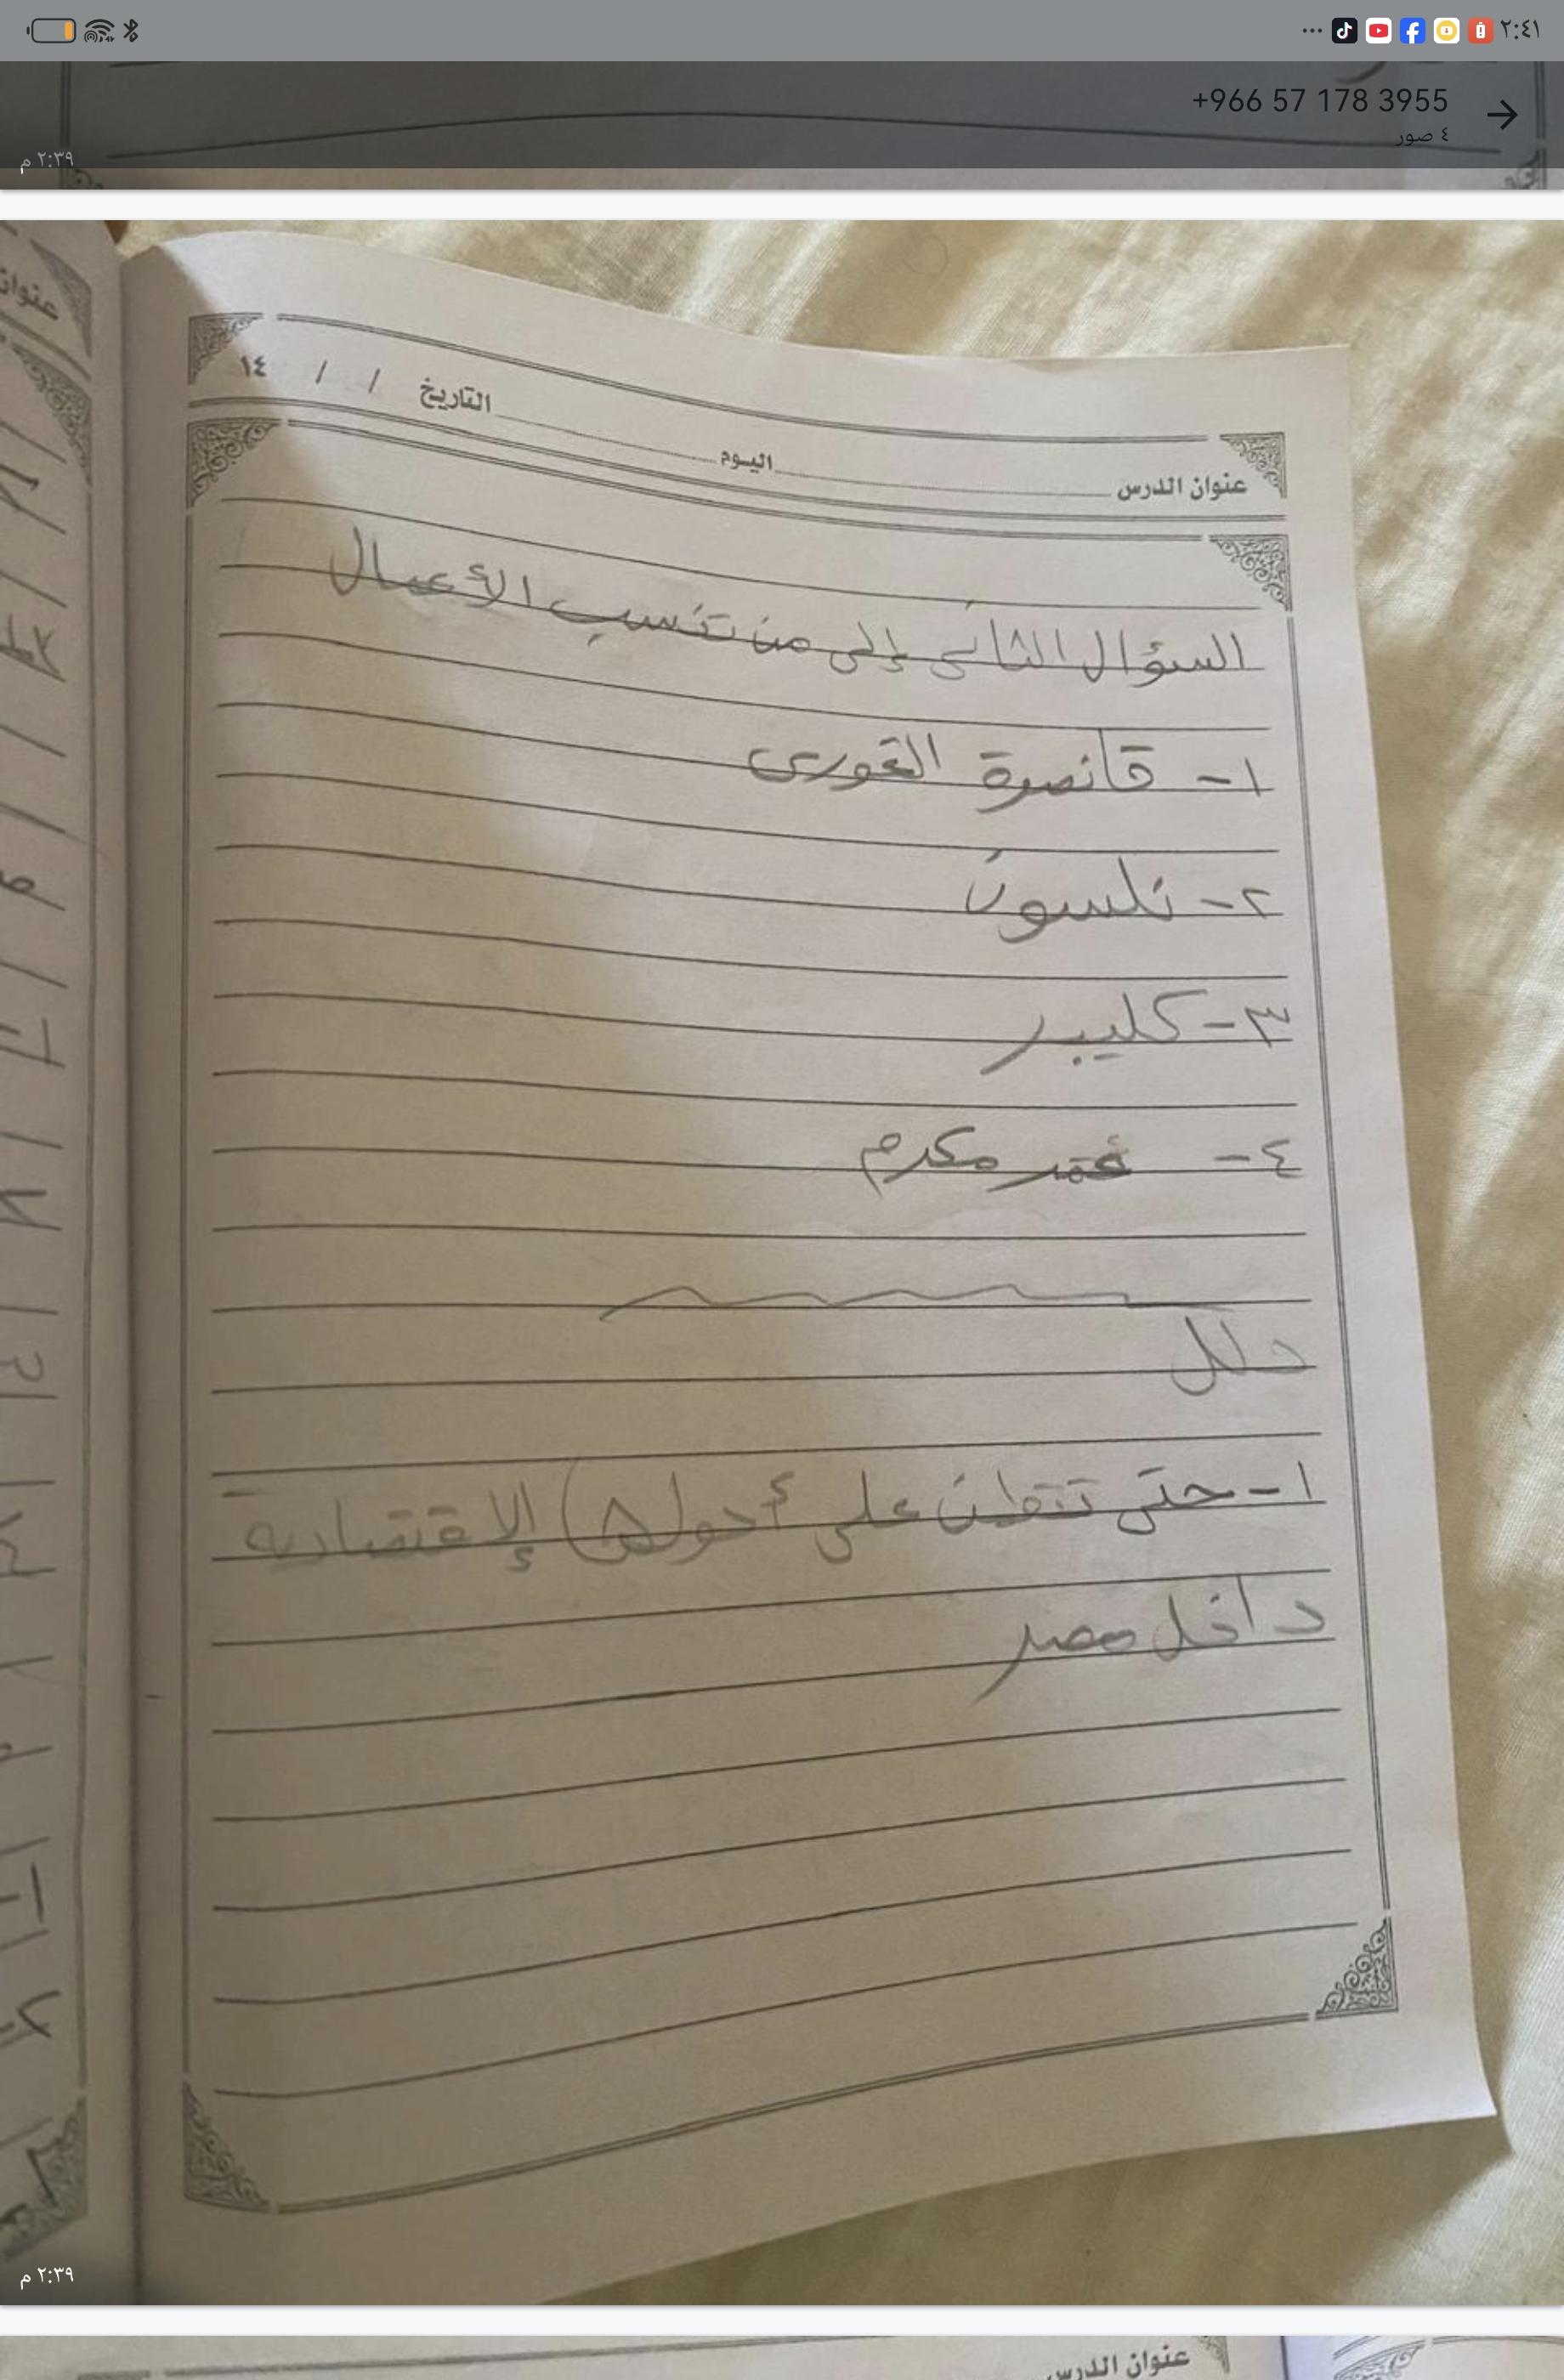 ٢:٤١
+966 57 178 3955
٤ صور
٢:٣٩ م
عنوان الدرس اليوم التاريخ / / ١٤
السؤال الثانى إلى من تنسب الأعمال
١- قانصوة الغورى
٢- نلسون
٣- كليبر
٤- عمر مكرم
دلل
١- حتى تتطمن على أحولها الإقتصادية
داخل مصر
٢:٣٩ م
عنوان الدرس